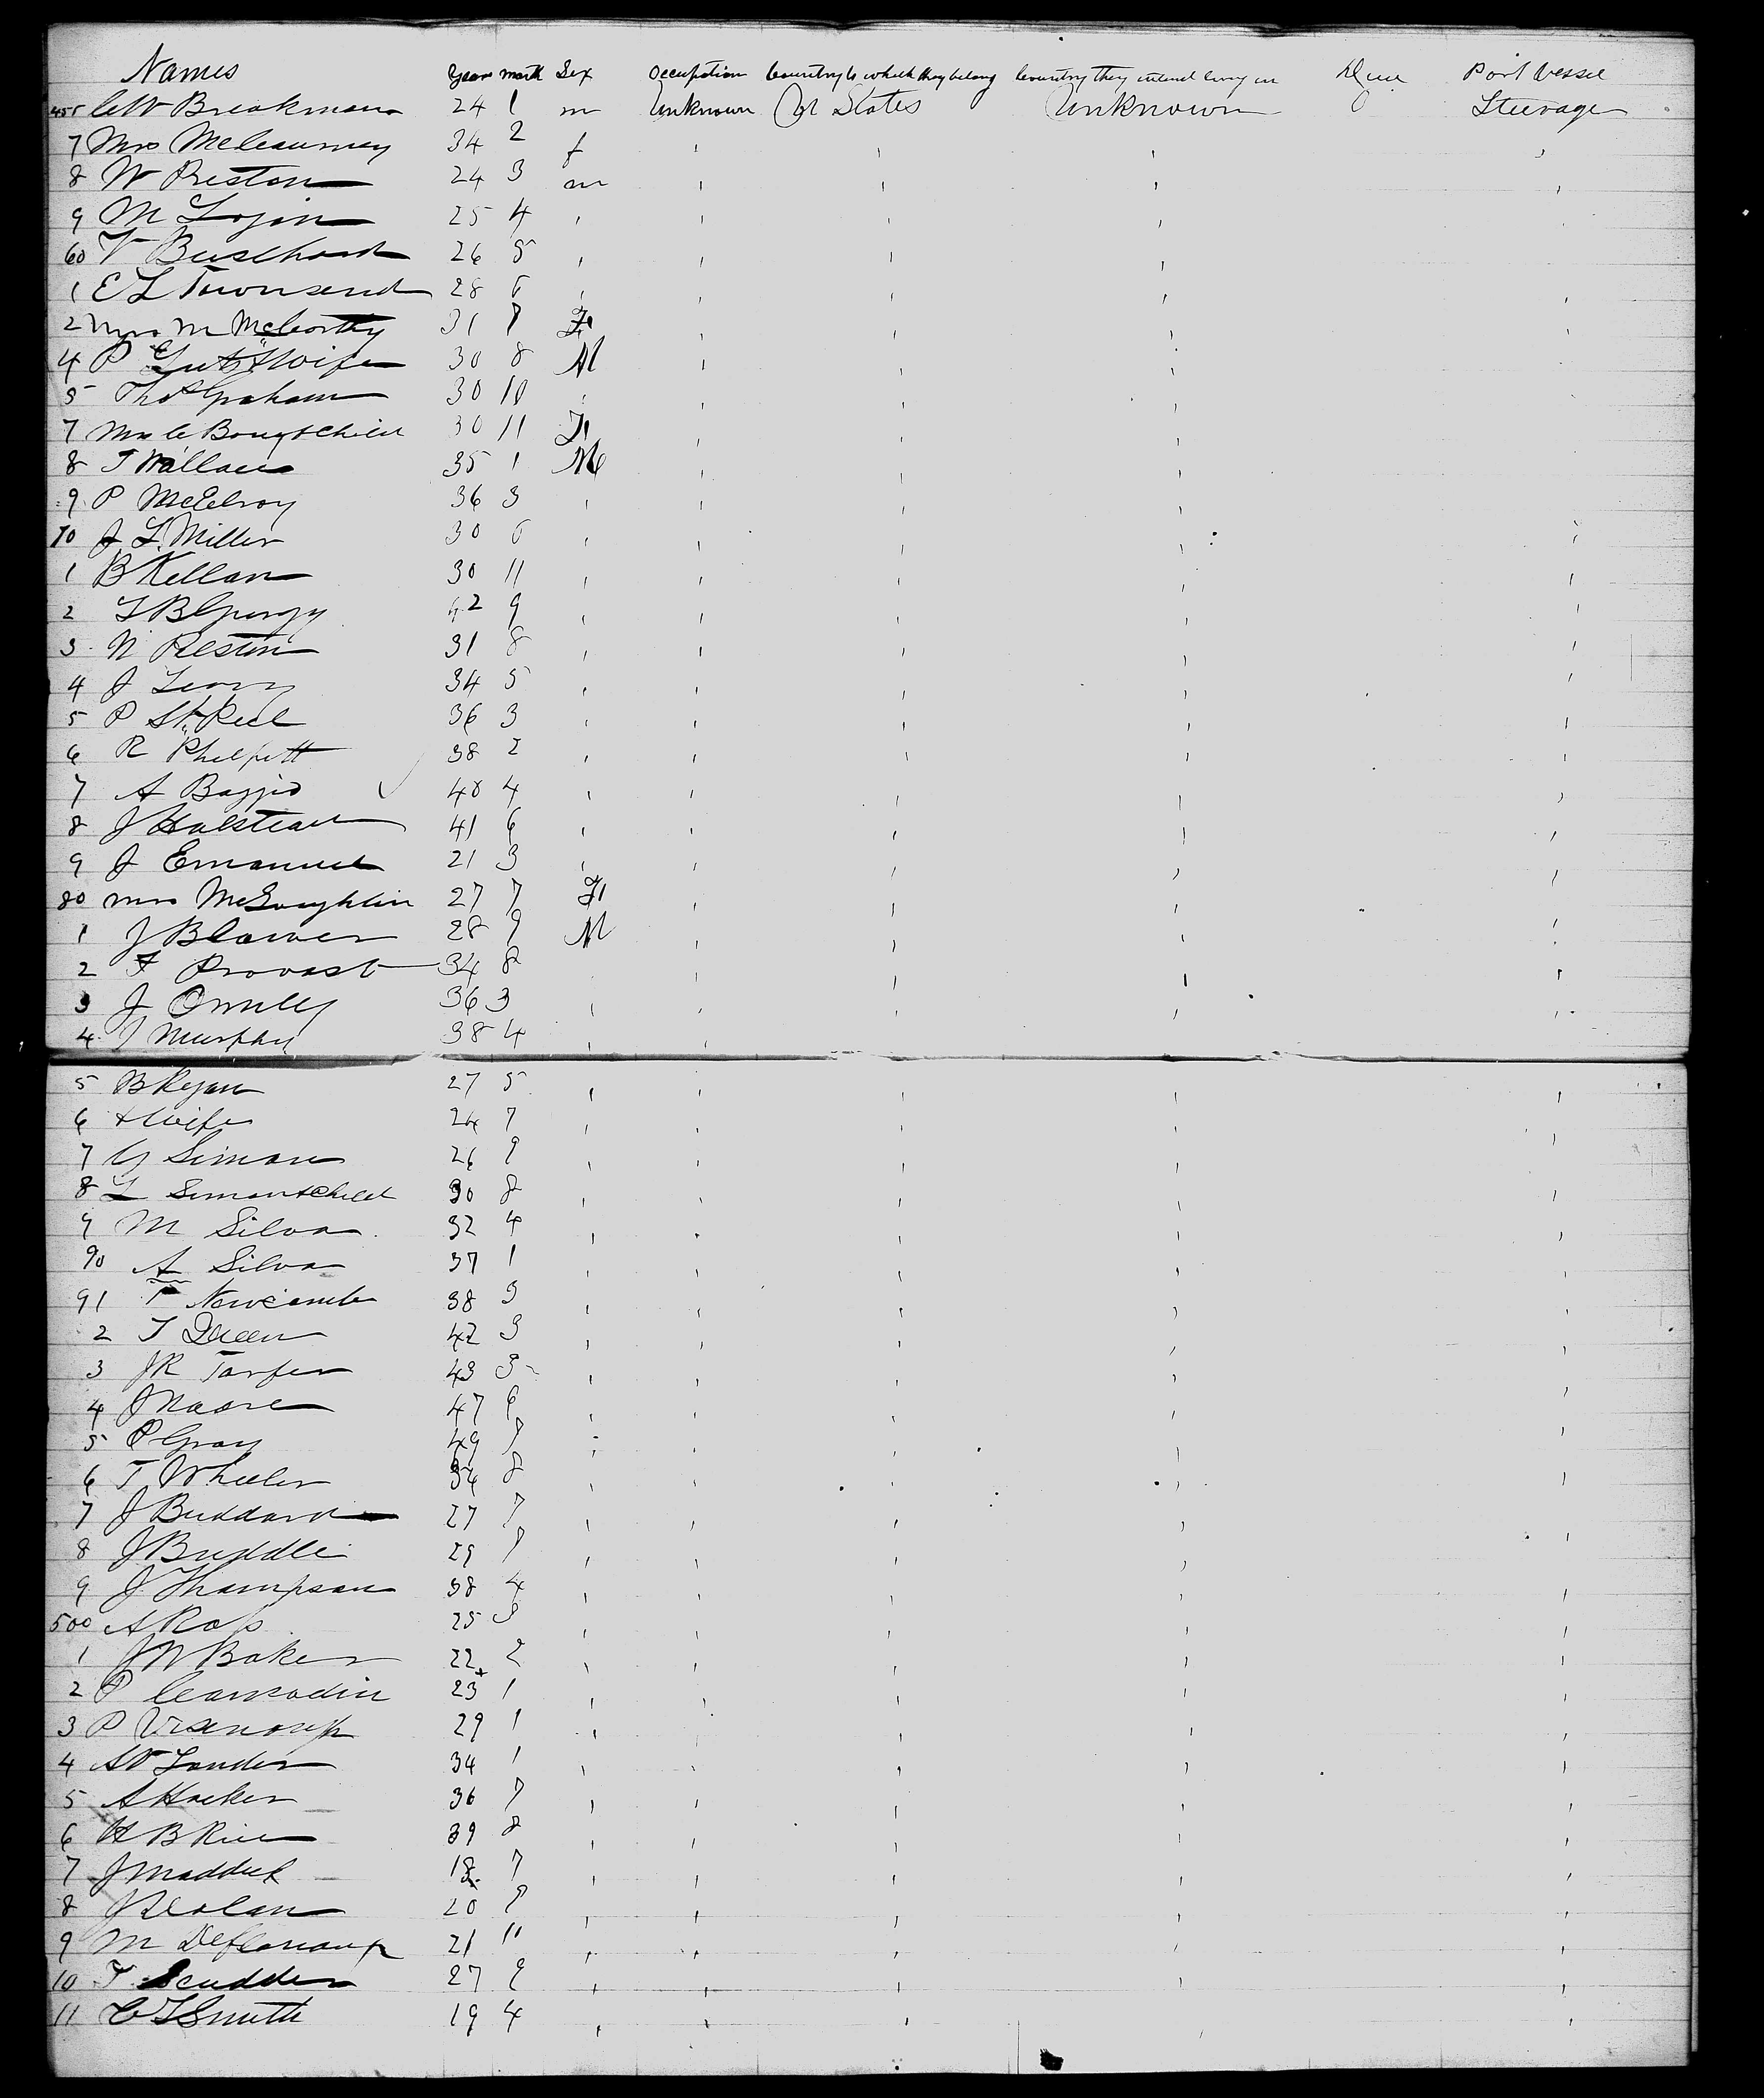 Names Years Month Sex Occupation Country to which they belong Country they intend living in Died Part Vessel
455 CW Breakman 24 1 m Unknown U States Unknown Steerage
7 Mrs 34 2 f
8 W Preston 24 3 m
9 M Login 25 4
60 V 26 5
1 E L Townsend 28 6
2 Mrs M McCorthy 31 7 F
4 P & Wife 30 8 M
5 Thos Graham 30 10
7 Mrs C & Child 30 11 F
8 T Wallace 35 1 M
9 P McElroy 36 3
70 J L Miller 30 6
1 B Kellan 30 11
2 L B 42 9
3 N Preston 31 8
4 J Leary 34 5
5 P St Peel 36 3
6 R Philpott 38 2
7 A Baggio 40 4
8 J Halstead 41 6
9 J Emanuel 21 3
80 mrs McLoughlin 27 7 F
1 J Blauver 28 9 M
2 F Provost 34 8
3 J 36 3
4 J Murphy 38 4
5 B Ryan 27 5
6 & Wife 24 7
7 Simon 26 9
8 L Simon & Child 30 8
9 M Silva 32 4
90 A Silva 37 1
91 T Newcomb 38 3
2 T Queen 42 3
3 J R Tarfer 43 3
4 J Moore 47 6
5 P Gray 49 7
6 T Wheeler 8
7 J Buddard 27 7
8 J Buddle 29 7
9 J Thompson 38 4
500 A Ross 25 3
1 J W Baker 22 2
2 P 23 1
3 P 29 1
4 Louder 34 1
5 A Hacker 36 7
6 H B Rice 39 8
7 J Maddick 18 7
8 J Dolan 20 9
9 M 21 11
10 T Scudder 27 9
11 C L Smith 19 4